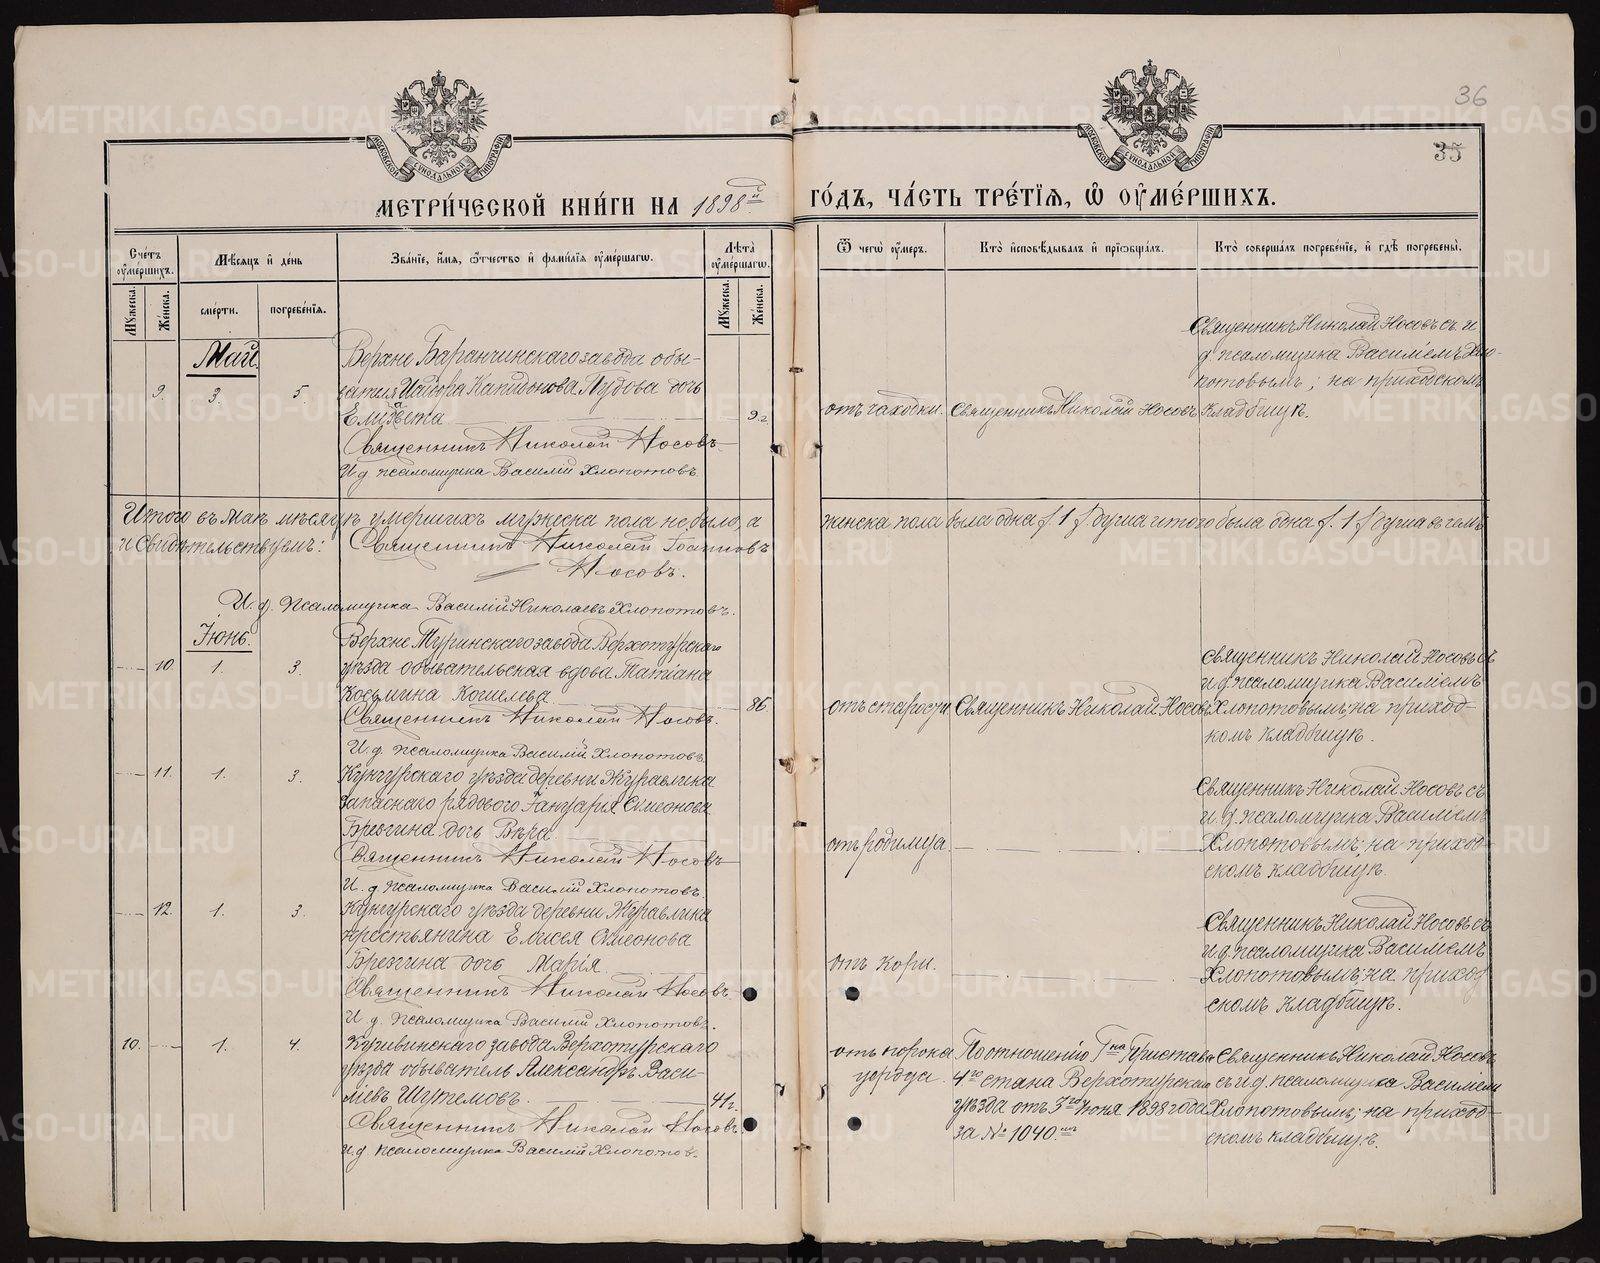 36
35
МОСКОВСКОЙ СѴНОДАЛЬНОЙ ТИПОГРАФІИ
МОСКОВСКОЙ СѴНОДАЛЬНОЙ ТИПОГРАФІИ
МЕТРИ́ЧЕСКОЙ КНИ́ГИ НА 1898й ГО́ДЪ, ЧА́СТЬ ТРЕ́ТІЯ, Ѽ ОУМЕ́РШИХЪ.
Сче́тъ оуме́ршихъ.
Мѣ́сяцъ и҆ де́нь
Зва́ніе, и҆́мя, ѻ҆́тчество и҆ фами́лїя оуме́ршагѡ.
Лѣ́та оуме́ршагѡ.
Ѿ чегѡ̀ оу́меръ.
Кто̀ и҆сповѣ́дывалъ и҆ прїѡбща́лъ.
Кто̀ соверша́лъ погребе́нїе, и҆ гдѣ̀ погребены̀.
Мꙋ́жеска.
Же́нска.
сме́рти.
погребе́нїя.
Мꙋ́жеска.
Же́нска.
Май.
9. 3. 5.
Верхне Баранчинскаго завода обы-
вателя Исидора Капидонова Пудова дочь
Елизавета 9 г.
Священникъ Николай Носовъ
И. д. псаломщика Василій Хлопотовъ.
отъ чахотки.
Священникъ Николай Носовъ
Священникъ Николай Носовъ съ и
д. псаломщика Василіемъ Хло-
потовымъ; на приходскомъ
кладбищѣ.
Итого въ Маѣ мѣсяцѣ умершихъ мужеска пола не было, а женска пола была одна /. 1 /. душа итого была одна /. 1 /. душа въ чемъ
и свидѣтельствуемъ: Священникъ Николай Іоанновъ
Носовъ.
И. д. псаломщика Василій Николаевъ Хлопотовъ.
Іюнь.
10 1. 3.
Верхне Туринскаго завода Верхотурскаго
уѣзда обывательская вдова Татіана
Косьмина Кошелева 86
Священникъ Николай Носовъ.
И. д. псаломщика Василій Хлопотовъ
отъ старости
Священникъ Николай Носовъ
Священникъ Николай Носовъ съ
и д. псаломщика Василіемъ
Хлопотовымъ; на приход-
комъ кладбищѣ.
11. 1. 3.
Кунгурскаго уѣзда деревни Журавлика
запаснаго рядового Іануарія Симеонова
Брезгина дочь Вѣра
Священникъ Николай Носовъ
И. д. псаломщика Василій Хлопотовъ.
отъ родимца
Священникъ Николай Носовъ съ
и. д. псаломщика Василіемъ
Хлопотовымъ; на приход-
скомъ кладбищѣ.
12. 1. 3.
Кунгурскаго уѣзда деревни Журавлика
крестьянина Елисея Симеонова
Брезгина дочь Марія
Священникъ Николай Носовъ
И. д. псаломщика Василій Хлопотовъ.
отъ кори.
Священникъ Николай Носовъ съ
и д. псаломщика Василіемъ
Хлопотовымъ; на приход
скомъ кладбищѣ.
10. 1. 4.
Кушвинскаго завода Верхотурскаго
уѣзда обыватель Александръ Васи-
ліевъ Шутемовъ. 41 г.
Священникъ Николай Носовъ.
и. д. псаломщика Василій Хлопотовъ.
отъ порока
сердца.
По отношенію Гна Пристава
4го стана Верхотурскаго
уѣзда отъ 3го Іюня 1898 года
за № 1040.мъ
Священникъ Николай Носовъ
съ и. д. псаломщика Василіемъ
Хлопотовымъ; на приход-
скомъ кладбищѣ.
METRIKI.GASO-URAL.RU